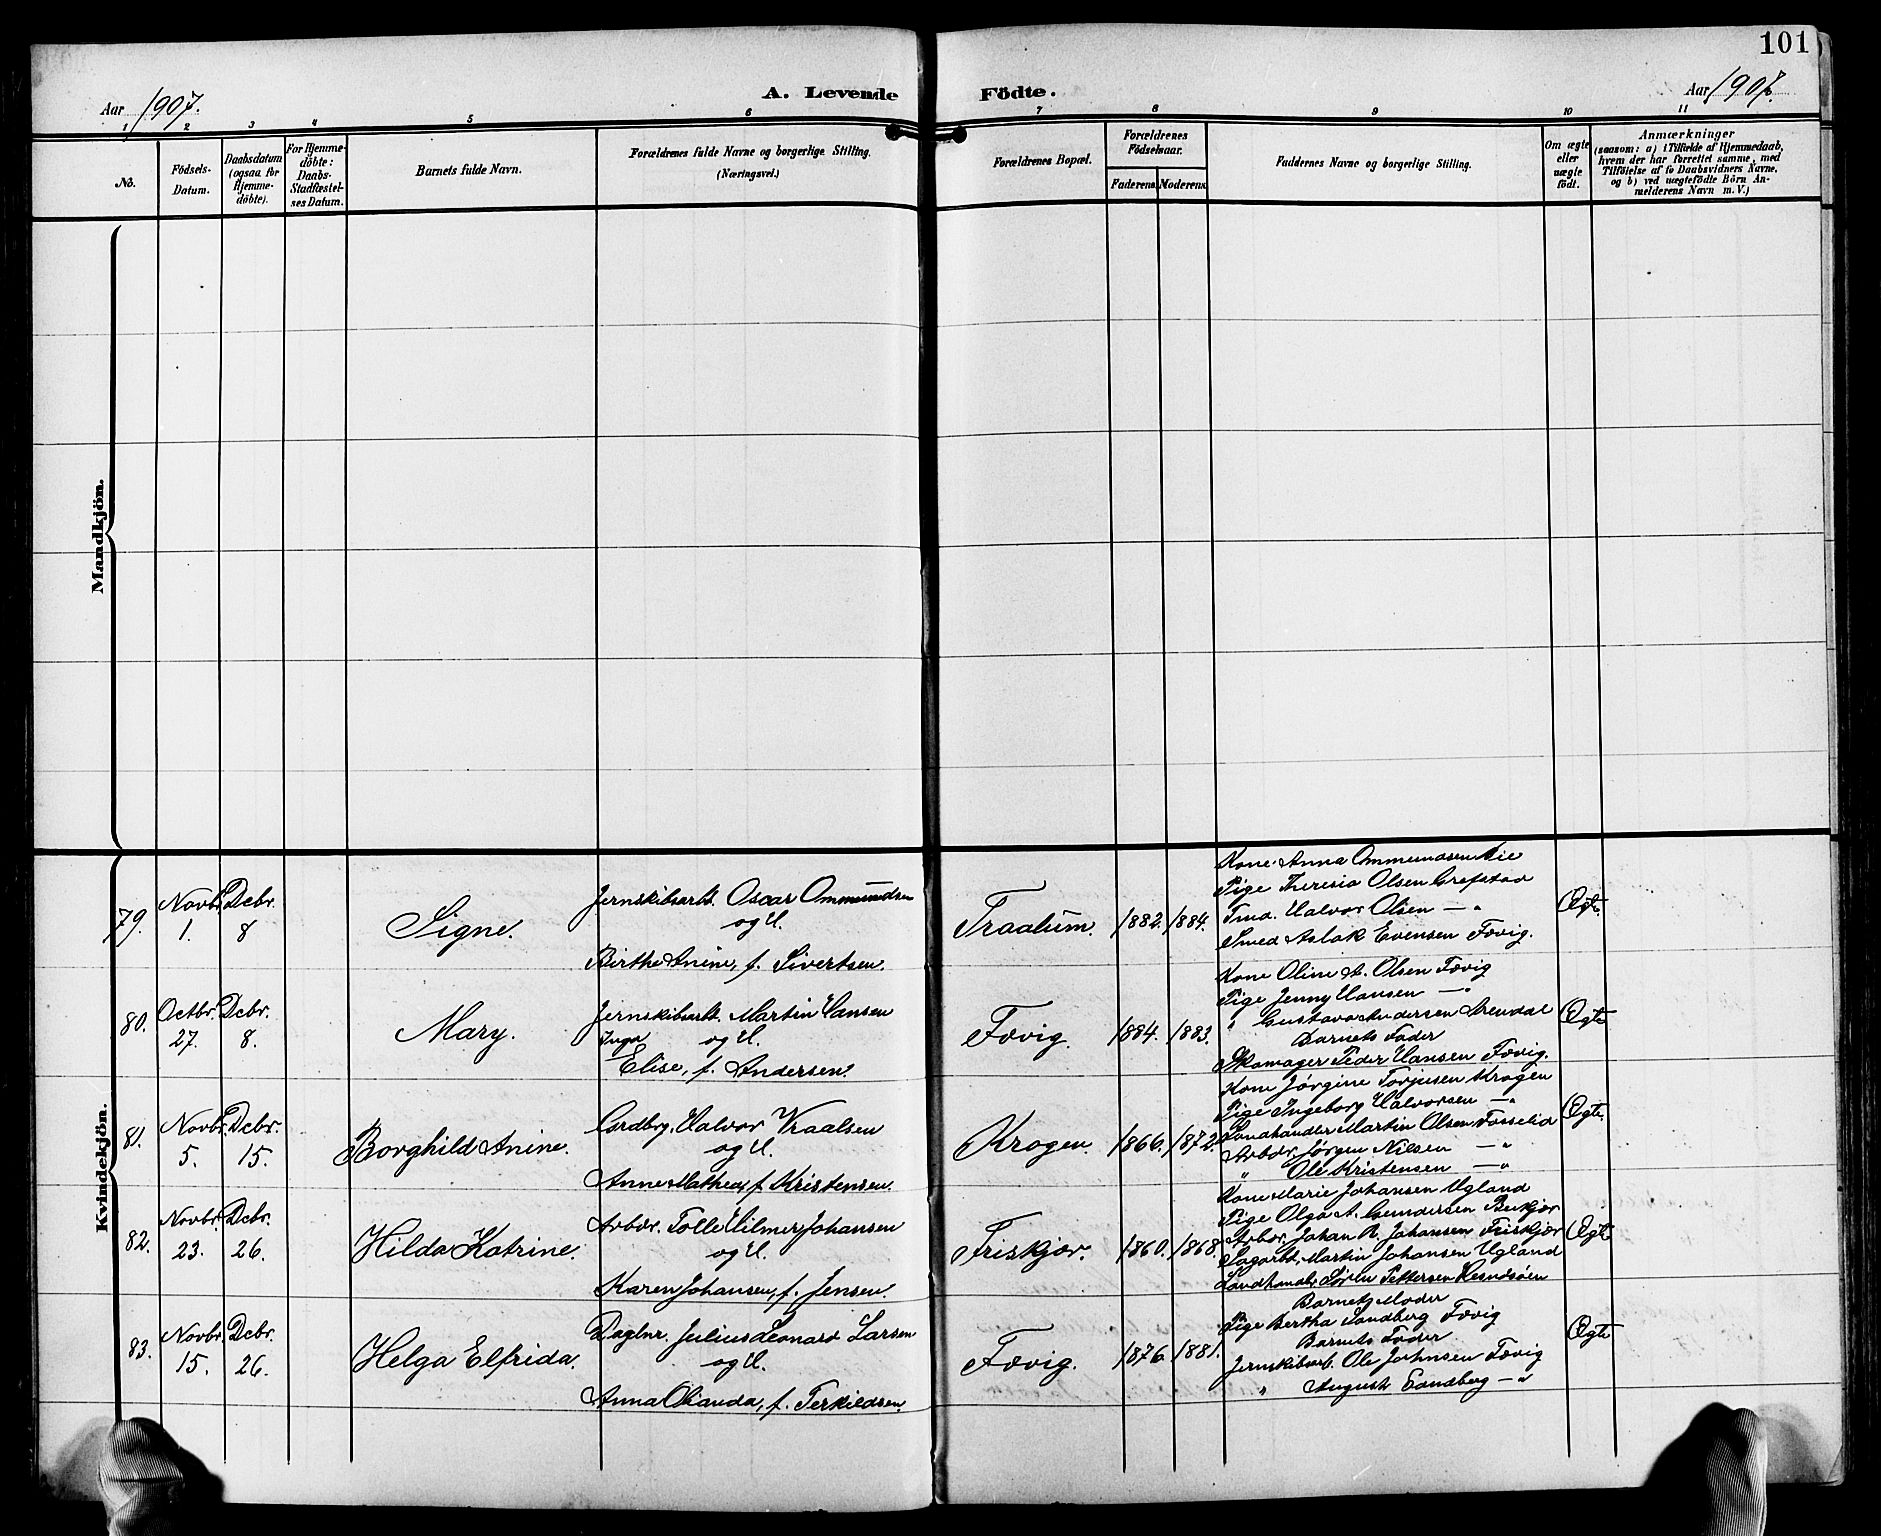 101
Aar 1907.
A. Levende Födte.
Aar 1907.
1 2 3 4 5 6 7 8 9 10 11
No.
Födsels-
Datum.
Daabsdatum
(ogsaa for
Hjemme-
döbte).
For Hjemme-
döbte:
Daabs-
Stadfæstel-
ses Datum.
Barnets fulde Navn.
Forældrenes fulde Navne og borgerlige Stilling.
(Næringsvei.)
Forældrenes Bopæl.
Forældrenes
Födselsaar.
Faderens. Moderens.
Faddernes Navne og borgerlige Stilling.
Om ægte
eller
uægte
födt.
Anmærkninger
(saasom: a) i Tilfælde af Hjemmedaab,
hvem der har forrettet samme, med
Tilföielse af to Daabsvidners Navne,
og b) ved uægtefödte Börn An-
melderens Navn m. V.)
Mandkjön.
Kvindekjön.
79.
Novbr.
1.
Dcbr.
8
Signe.
Jernskibsarb. Oscar Ommundsen
og H.
Birthe Anine, f. Sivertsen.
Traalum.
1882.
1884.
Kone Anna Ommundsen Vie
Pige Theresia Olsen Grefstad
Tmd. Halvor Olsen —"
Smed Aslak Evensen Fævig.
Ægte
80.
Octbr.
27.
Dcbr.
8.
Mary.
Jernskibsarb. Martin Hansen
Inga og H.
Elise, f. Andersen.
Fævig.
1884.
1883.
Kone Oline A. Olsen Fævig
Pige Jenny Hansen —"
" Gustava Andersen Arendal
Barnets Fader
Skomager Peder Hansen Fævig.
Ægte
81.
Novbr.
5.
Dcbr.
15.
Borghild Anine.
Gordbrg. Halvor Vraalsen
og H.
Anne Mathea, f. Kristensen.
Krogen.
1866.
1872.
Kone Jørgine Torjusen Krogen
Pige Ingeborg Halvorsen —"
Landhandler Martin Olsen Fosselid
Arbdr. Jørgen Nilsen —"
" Ole Kristensen —"
Ægte.
82.
Novbr.
23.
Dcbr.
26.
Hilda Katrine.
Arbdr. Tolle Hilmer Johansen
og H.
Karen Johansen, f. Jensen.
Friskjær.
1860.
1868.
Kone Marie Johansen Ugland
Pige Olga A. Gundersen Birkjær
Arbdr. Johan R. Johansen Friskjær
Sagarbd. Martin Johansen Ugland
Landhandl. Søren Pettersen Hesnæsøen
Ægte
83.
Novbr.
15.
Dcbr.
26.
Helga Elfrida.
Daglnr. Julius Leonard Larsen
og H.
Anna Olianda, f. Terkildsen.
Fævig.
1876.
1881.
Barnets Moder
Pige Bertha Sandberg Fævig
Barnets Fader
Jernskibsarb. Ole Johnsen Fævig
" August Sandberg —"
Ægte